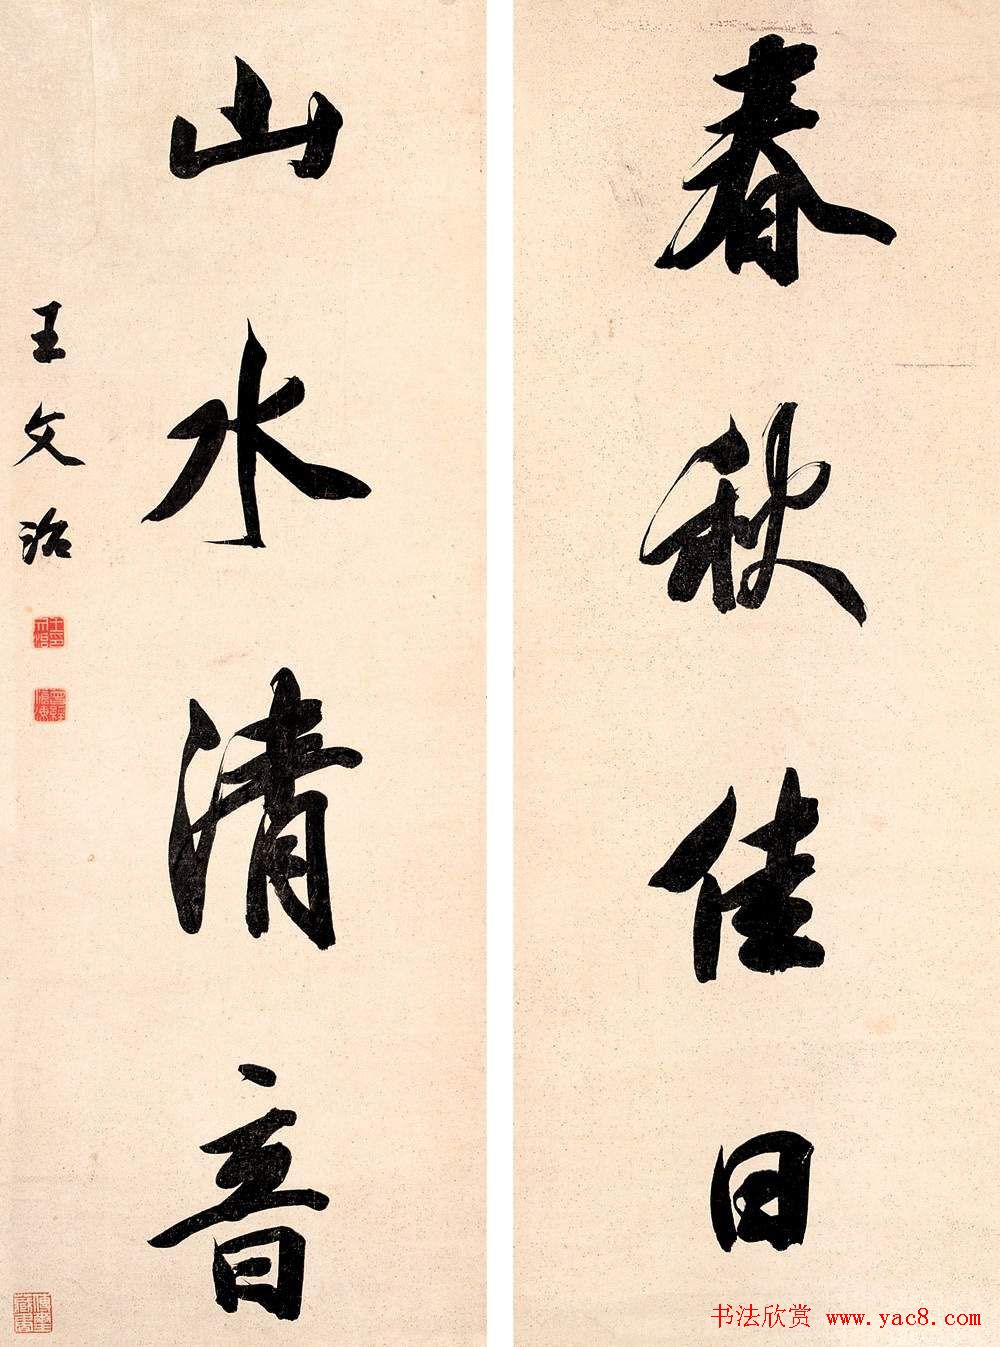 春秋佳日
山水清音
王文治
书法欣赏 www.yac8.com